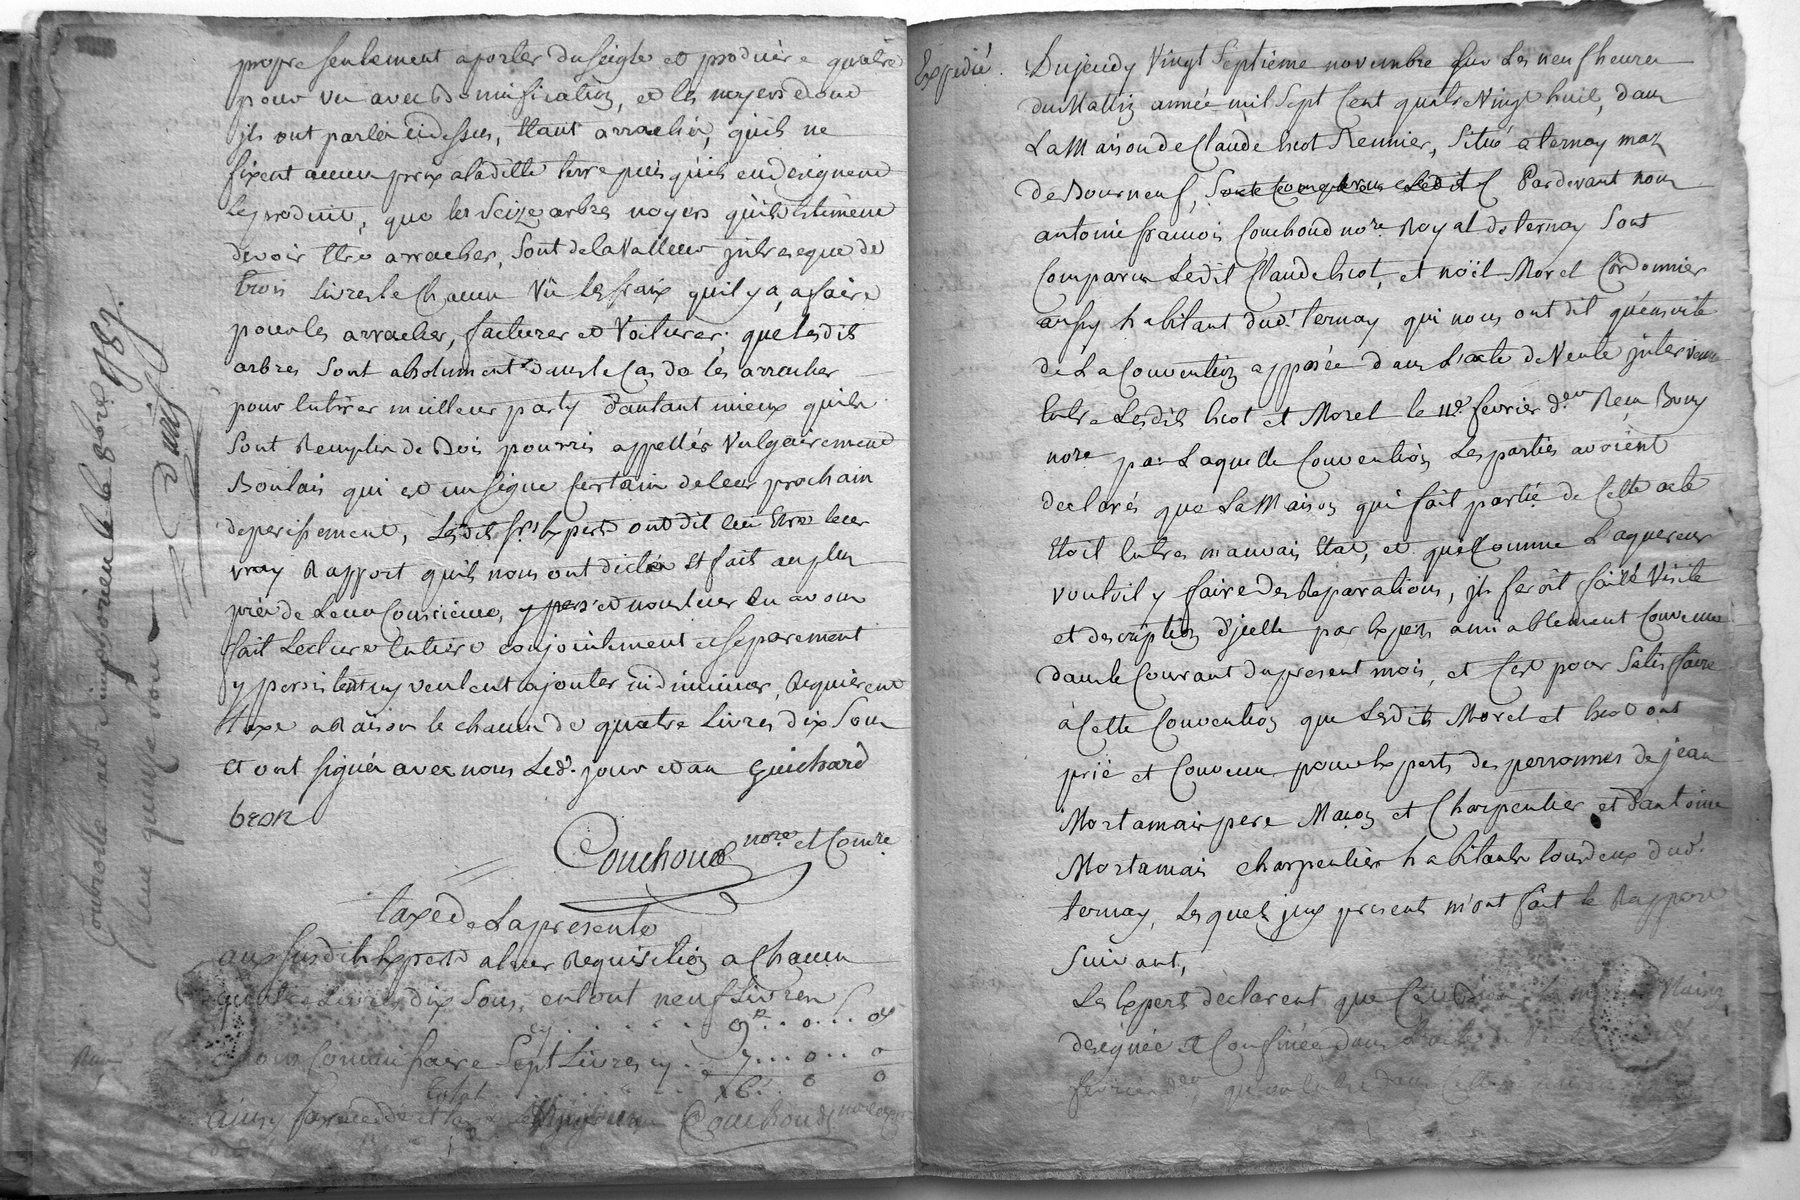 propre seulement a porter du seigle et produire qu'etre
pour un avec Bonnification, et les noyers dont
jls ont parlér cidessus, Etant arrachér, qu'ils ne
fixent aucun prix aladitte terre puis qu'ils en designent
Le produit, que les Seize arbres noyers qu'ils Estiment
devoir Etre arracher, Sont de la Valleur jntreseque de
trois Livres le Chacun Vû les fraix qu'il y a, a faire
pour les arracher, facturer et Voiturer. que lesdits
arbres Sont absolument dans le Cas de les arracher
pour Entirer meilleur party d'autant mieux qu'ils
Sont Remplis de Bois pourris appellés Vulgairement
Boulais qui est un signe Certain de leur prochain
deperissement, Lesdits srs Experts ont dit Ceci Etre leur
vray Rapport quils nous ont dictée Et fait au plus
prèr de Leur Conscience, y pers et nous leur En avons
fait Lecture Entiere conjointement et separement
y persistent ny veulent ajouter ni diminuer, Requierent
taxe a Raison le chacun de quatre Livres dix Sous
Et ont signér avec nous Led. jour et an Guichard
bron
Couchoud nore. et Comre
taxe de La presente
aux susdits Experts a leur Requisition a Chacun
quatre Livres dix Sous, en tout neuf Livres
cy . . . . . . 9 . . 0 . . . 0
a nous Commissaire Sept Livres cy . . 7 . . . 0 . . 0
Total . . . . . . 16 . 0 0
Couchoud
Controllé a St. Simphorien le 8 8bre. 1789.
quinze sous
Expedié.
Dujeudy Vingt Septieme novembre sur Les neuf heures
du Mattin année mil Sept Cent quatre Vingt huit, dans
La Maison de Claude hiot Rentier, Situé a ternay mas
de Bourneuf, Pardevant nous
antoine francois Couchoud nore. Royal de ternay Sont
Comparus Ledit Claude hiot, et noël Morel Cordonnier
aussy habitant dud. ternay qui nous ont dit qu'ensuite
de La Convention apposée dans L'acte de Vente jntervenu
Entre Lesdits hiot et Morel le 11e. fevrier der Reçu Bouy
nore par Laquelle Convention Les parties avoient
declarés que La Maison qui fait partie de Cette acte
Etoit Entres mauvais Etat, et que Comme L'aquereur
vouloit y faire des Reparations, jls seroit faitte Visite
et description d'jcelle par Experts amiablement Convenus
dans le Courant du present mois, et C'est pour Satisfaire
à Cette Convention que Lesdits Morel et hiot ont
prié et Convenu pour Experts des personnes de jean
Mortamais pere Maçon et Charpentier et d'antoine
Mortamais charpentier habitants tous deux dud.
ternay, Lesquels jcy presents m'ont fait le Rapport
Suivant,
Les Experts declarent que
designée et Confinée dans L'acte de
fevrier der, qu'en Entre dans Cette